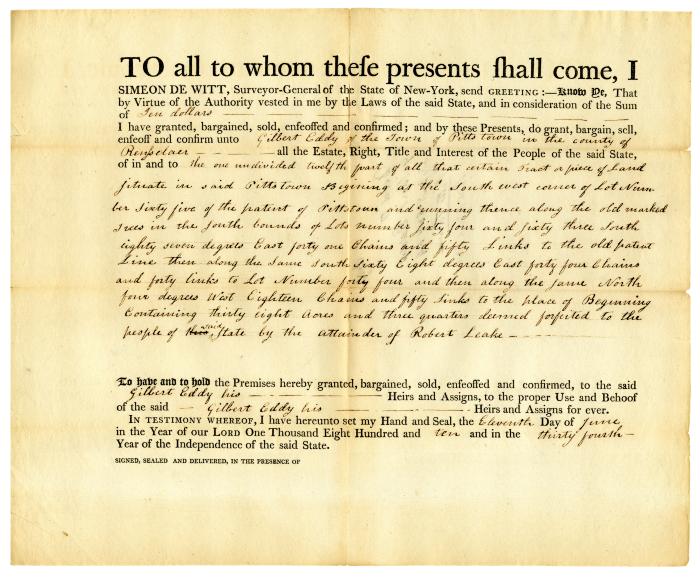 TO all to whom theſe presents ſhall come, I
SIMEON DE WITT, Surveyor-General of the State of New-York, send GREETING :—Know Ye, That
by Virtue of the Authority vested in me by the Laws of the said State, and in consideration of the Sum
of Ten dollars
I have granted, bargained, sold, enfeoffed and confirmed; and by these Presents, do grant, bargain, sell,
enfeoff and confirm unto Gilbert Eddy of the Town of Pittstown in the county of
Rensselaer — — — all the Estate, Right, Title and Interest of the People of the said State,
of in and to the one undivided twelfth part of all that certain Tract or piece of Land
situate in said Pittstown Begining at the South west corner of Lot Num-
ber Sixty five of the patent of Pittstown and running thence along the old marked
Trees in the South bounds of Lots number Sixty four and sixty three South
eighty seven degrees East forty one Chains and fifty Links to the old patent
Line then along the Same South Sixty Eight degrees East forty four Chains
and forty links to Lot Number forty four and then along the Same North
four degrees West Eighteen Chains and fifty Links to the place of Beginning
Containing thirty eight Acres and three quarters deemed forfeited to the
people of said State by the attainder of Robert Leake —
To have and to hold the Premises hereby granted, bargained, sold, enfeoffed and confirmed, to the said
Gilbert Eddy his — Heirs and Assigns, to the proper Use and Behoof
of the said — Gilbert Eddy his — Heirs and Assigns for ever.
In TESTIMONY WHEREOF, I have hereunto set my Hand and Seal, the Eleventh Day of June
in the Year of our LORD One Thousand Eight Hundred and ten and in the thirty fourth —
Year of the Independence of the said State.
SIGNED, SEALED AND DELIVERED, IN THE PRESENCE OF